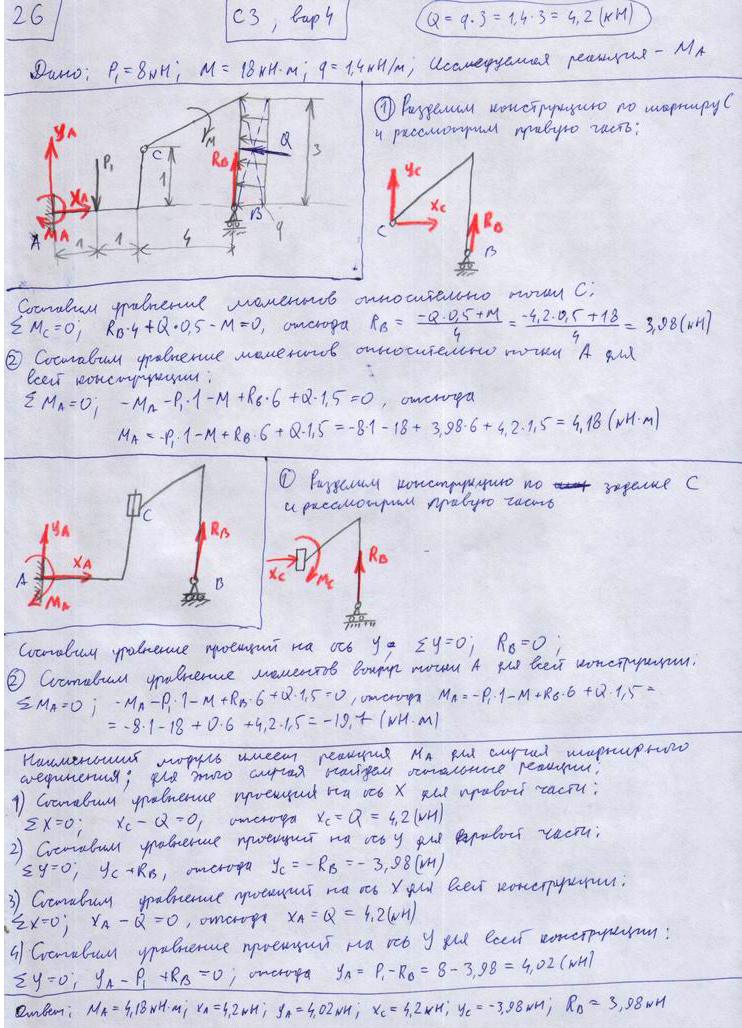 26
С3, вар4
Q = q·3 = 1,4·3 = 4,2 (кН)
Дано: P₁ = 8кН; M = 18кН·м; q = 1,4кН/м; Исследуемая реакция - MA
YA
P₁
XA
A
MA
C
M
RB
Q
B
q
1
3
1
1
4
① Разделим конструкцию по шарниру C
и рассмотрим правую часть:
YC
XC
C
RB
B
Составим уравнение моментов относительно точки C:
ΣMC=0; RB·4 + Q·0,5 - M=0, отсюда RB = (-Q·0,5+M)/4 = (-4,2·0,5+18)/4 = 3,98(кН)
② Составим уравнение моментов относительно точки A для
всей конструкции:
ΣMA=0; -MA -P₁·1 -M +RB·6 + Q·1,5 =0, отсюда
MA = -P₁·1 -M+RB·6 +Q·1,5 = -8·1 - 18 + 3,98·6 + 4,2·1,5 = 4,18 (кН·м)
YA
XA
A
MA
C
RB
B
① Разделим конструкцию по заделке C
и рассмотрим правую часть
XC
MC
RB
Составим уравнение проекций на ось Y: ΣY=0; RB=0;
② Составим уравнение моментов вокруг точки A для всей конструкции:
ΣMA=0; -MA-P₁·1-M+RB·6+Q·1,5=0, отсюда MA=-P₁·1-M+RB·6+Q·1,5=
= -8·1-18+0·6+4,2·1,5=-19,7 (кН·м)
Наименьший модуль имеет реакция MA для случая шарнирного
соединения; для этого случая найдем остальные реакции;
1) Составим уравнение проекция на ось X для правой части:
ΣX=0; XC-Q=0, отсюда XC=Q=4,2(кН)
2) Составим уравнение проекций на ось Y для правой части:
ΣY=0; YC+RB, отсюда YC=-RB=-3,98(кН)
3) Составим уравнение проекций на ось X для всей конструкции:
ΣX=0; XA-Q=0, отсюда XA=Q=4,2(кН)
4) Составим уравнение проекций на ось Y для всей конструкции:
ΣY=0, YA-P₁+RB=0; отсюда YA=P₁-RB=8-3,98=4,02(кН)
Ответ: MA=4,18кН·м; XA=4,2кН; YA=4,02кН; XC=4,2кН; YC=-3,98кН; RB=3,98кН